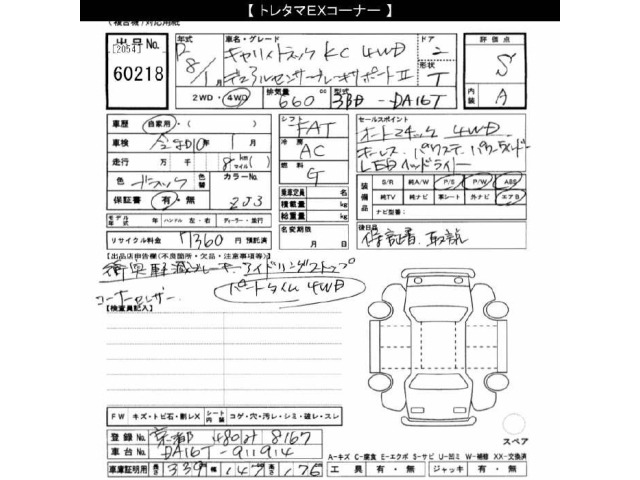 【 トレタマEXコーナー 】
(複合機)対応用紙
出品No.
[2054]
60218
年式
R8/1月
車名・グレード
キャリイトラック KC 4WD
デュアルセンサーブレーキサポートⅡ
ドア
二
形状
T
評価点
S
内装
A
2WD・4WD
排気量
660 cc
型式
3BD-DA16T
車歴
自家用・( )
車検
令和10年1月
走行
万 千 8 km(マイル)
色
ブラック
色替
カラーNo.
ZJ3
保証書
有・無
モデル年式
年
ハンドル 左・右
ディーラー・並行
リサイクル料金
11360 円 預託済
シフト
FAT
冷房
AC
燃料
G
乗車定員 名
積載量 kg
総重量 kg
名変期限
月 日
セールスポイント
オートマチック 4WD
キーレス パワステ パワーウィンドー
LEDヘッドライト
装備品
S/R 純A/W P/S P/W ABS
純TV 純ナビ 革シート 外ナビ エアB
ナビ型番:
後日品
保証書、取説
【出品店申告欄(不良箇所・欠品・注意事項等)】
衝突軽減ブレーキ アイドリングストップ
コーナーセンサー パートタイム4WD
【検査員記入】
FW キズ・トビ石・劃レX
シート内装 コゲ・穴・汚レ・シミ・破レ・スレ
登録No.
京都 480 け 8167
車台No.
DA16T-911914
車庫証明用 長さ 339 幅 147 高さ 176
スペア
A-キズ C-腐食 E-エクボ S-サビ U-凹ミ W-補修 XX-交換済
工具 有・無 ジャッキ 有・無